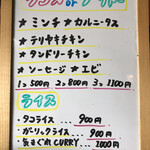 ★ミンチ ★カルニータス
★テリヤキチキン
★タンドリーチキン
★ソーセージ ★エビ
1ヶ500円 2ヶ800円 3ヶ1100円
ライス
タコライス … 900円
ガーリックライス … 900円
気まぐれCURRY … 1000円